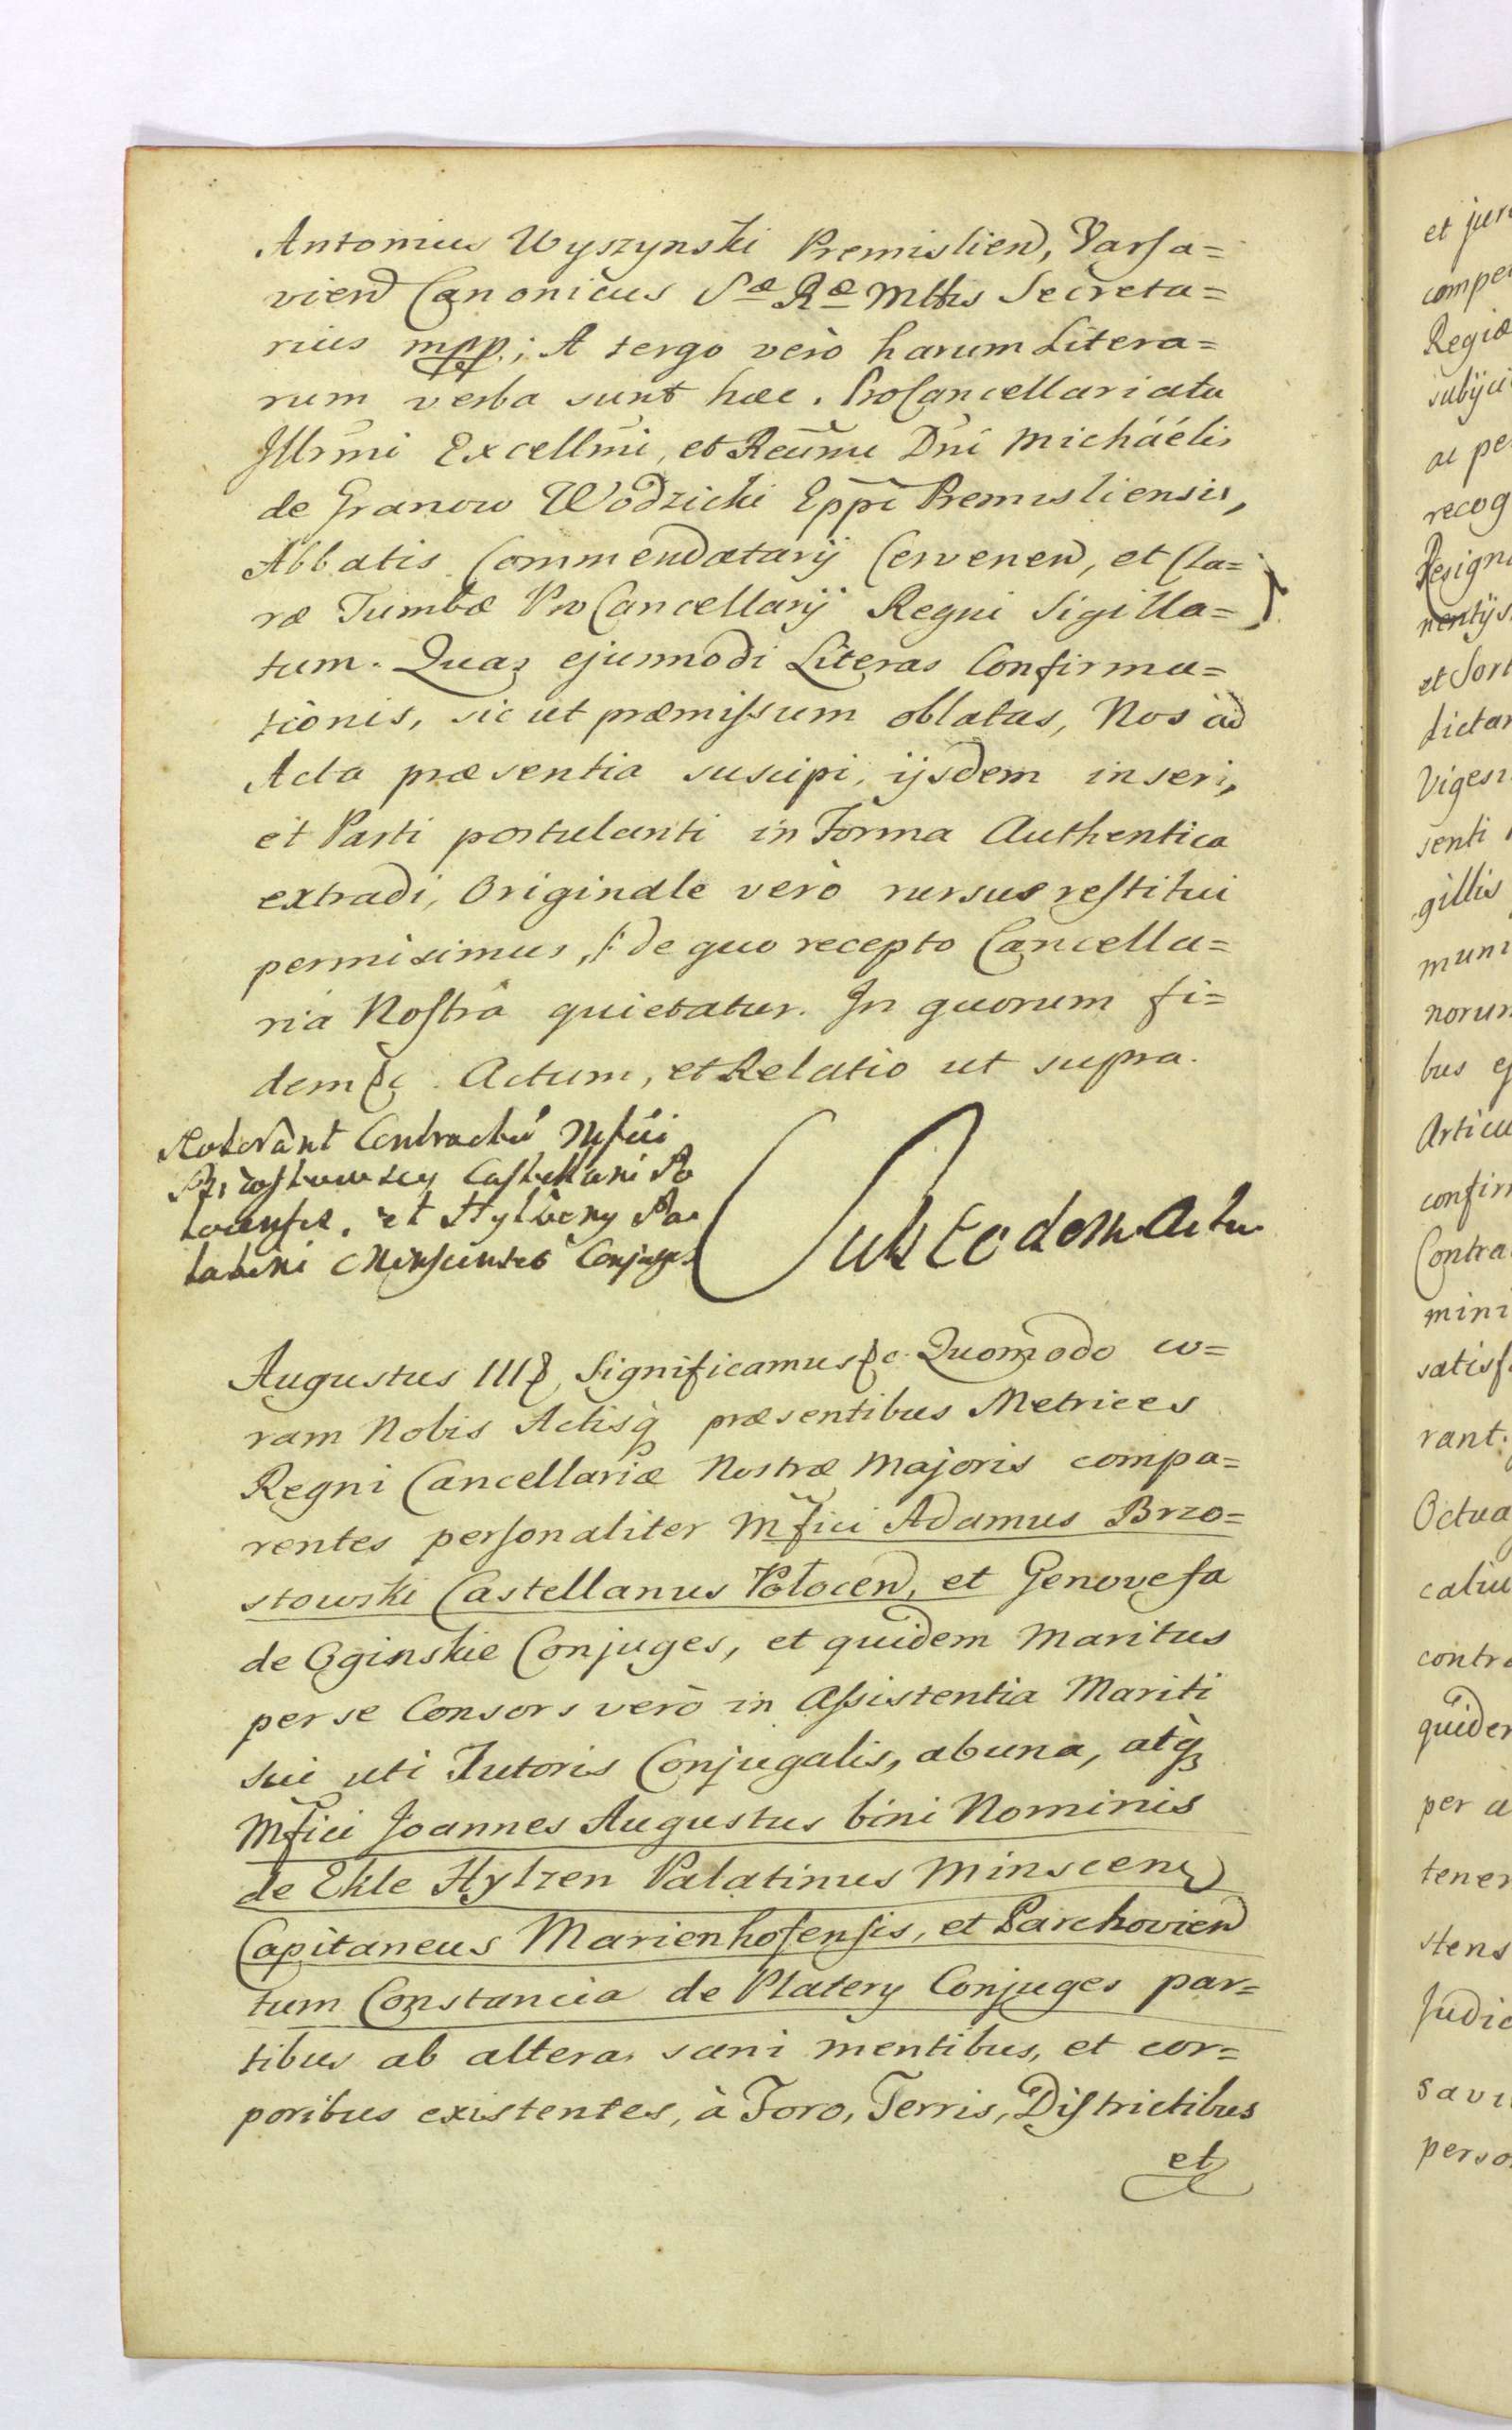 Antonius Wyszynski Premislien, Varsa=
vien Canonicus Sæ Ræ Mttis Secreta=
rius mpp.; A tergo verò harum Litera=
rum verba sunt hæc. ProCancellariatu
Illrmi Excellmi, et Reumi Dni Micháélis
de Granow Wodzicki Eppi Premisliensis,
Abbatis Commendatarij Cervenen, et Cla=
ræ Tumbæ ProCancellarij Regni Sigilla=
tum. Quas ejusmodi Literas Confirma=
tionis, sic ut præmissum oblatas, Nos ad
Acta præsentia suscipi, ijsdem inseri,
et Parti postulanti in Forma Authentica
extradi, Originale verò rursus restitui
permisimus, de quo recepto Cancella=
ria Nostra quietatur. In quorum fi=
dem &c. Actum, et Relatio ut supra.
Contractum Mfici
Castellani Po
et Hylzeny Pa
latini Minscensis Conjuges
Sub eodem Actu
Augustus III& Significamus &c. Quomodo co=
ram Nobis Actisq præsentibus Metrices
Regni Cancellariæ Nostræ Majoris compa=
rentes personaliter Mfici Adamus Brzo=
stowski Castellanus Polocen, et Genovefa
de Oginskie Conjuges, et quidem Maritus
per se Consors verò in Assistentia Mariti
sui uti Tutoris Conjugalis, ab una, atq
Mfici Joannes Augustus bini Nominis
de Ekle Hylzen Palatinus Minscen
Capitaneus Marienhofensis, et Parchovien
tum Constancia de Platery Conjuges par=
tibus ab altera, sani mentibus, et cor=
poribus existentes, à Foro, Terris, Districtibus
et
et jur
compe
Regiæ
subijci
ac pe
recog
Design
nentijs
et Sort
dictar
Viges
senti
gillis
muni
norum
bus ej
Articu
confir
Contra
mini
satisf
rant.
Octua
calcu
contra
quidem
per a
tener
stens
Judic
savi
perso